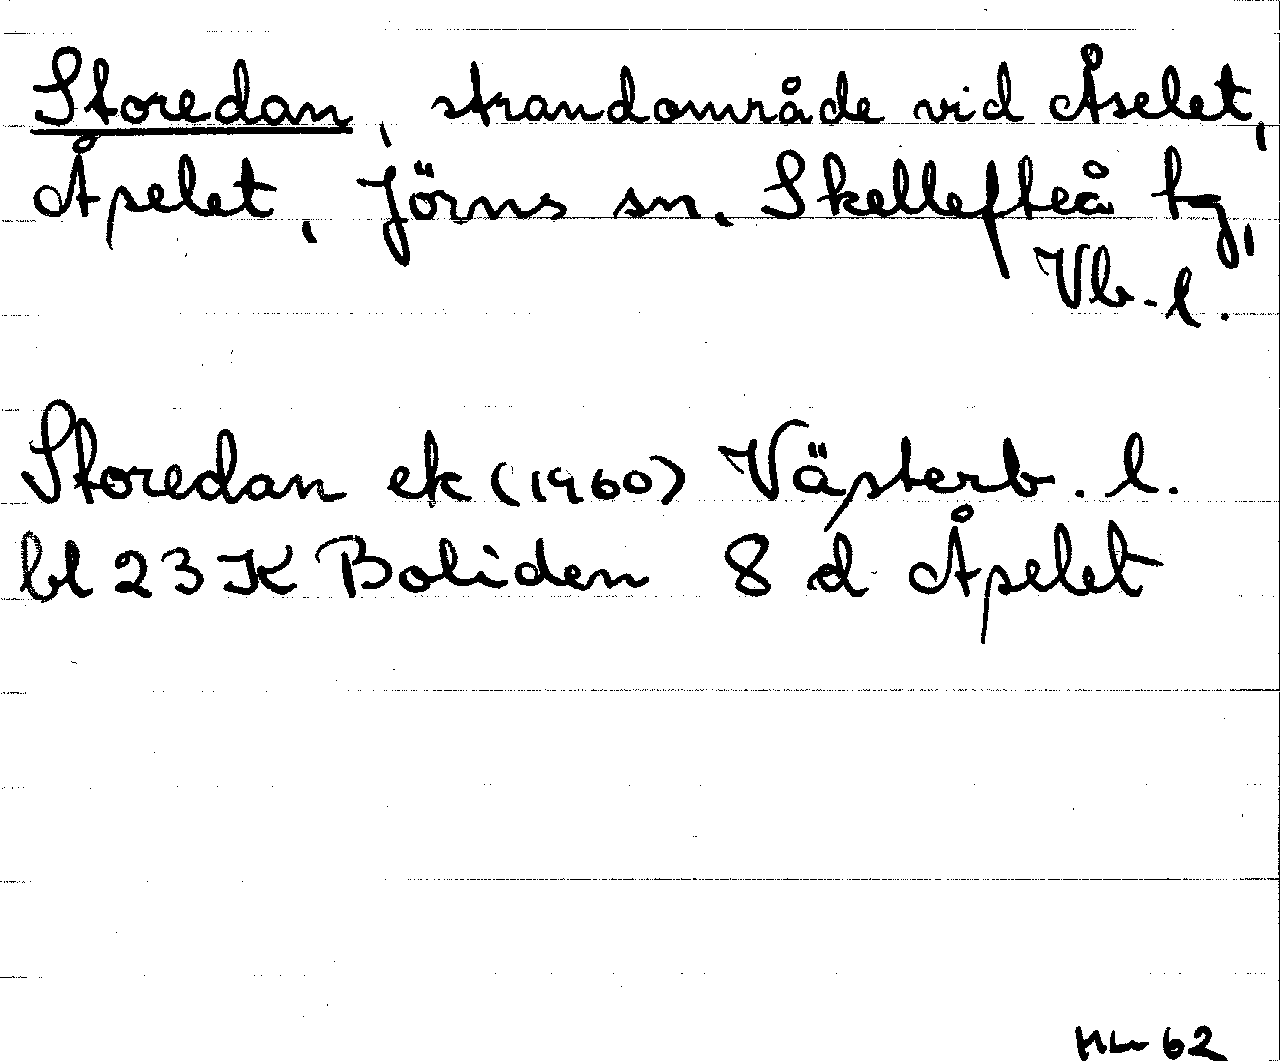 Storedan, strandområde vid Åselet,
Åselet, Jörns sn. Skellefteå tg,
Vb. l.
Storedan ek (1960) Västerb. l.
bl 23 K Boliden 8 d Åselet
HL 62